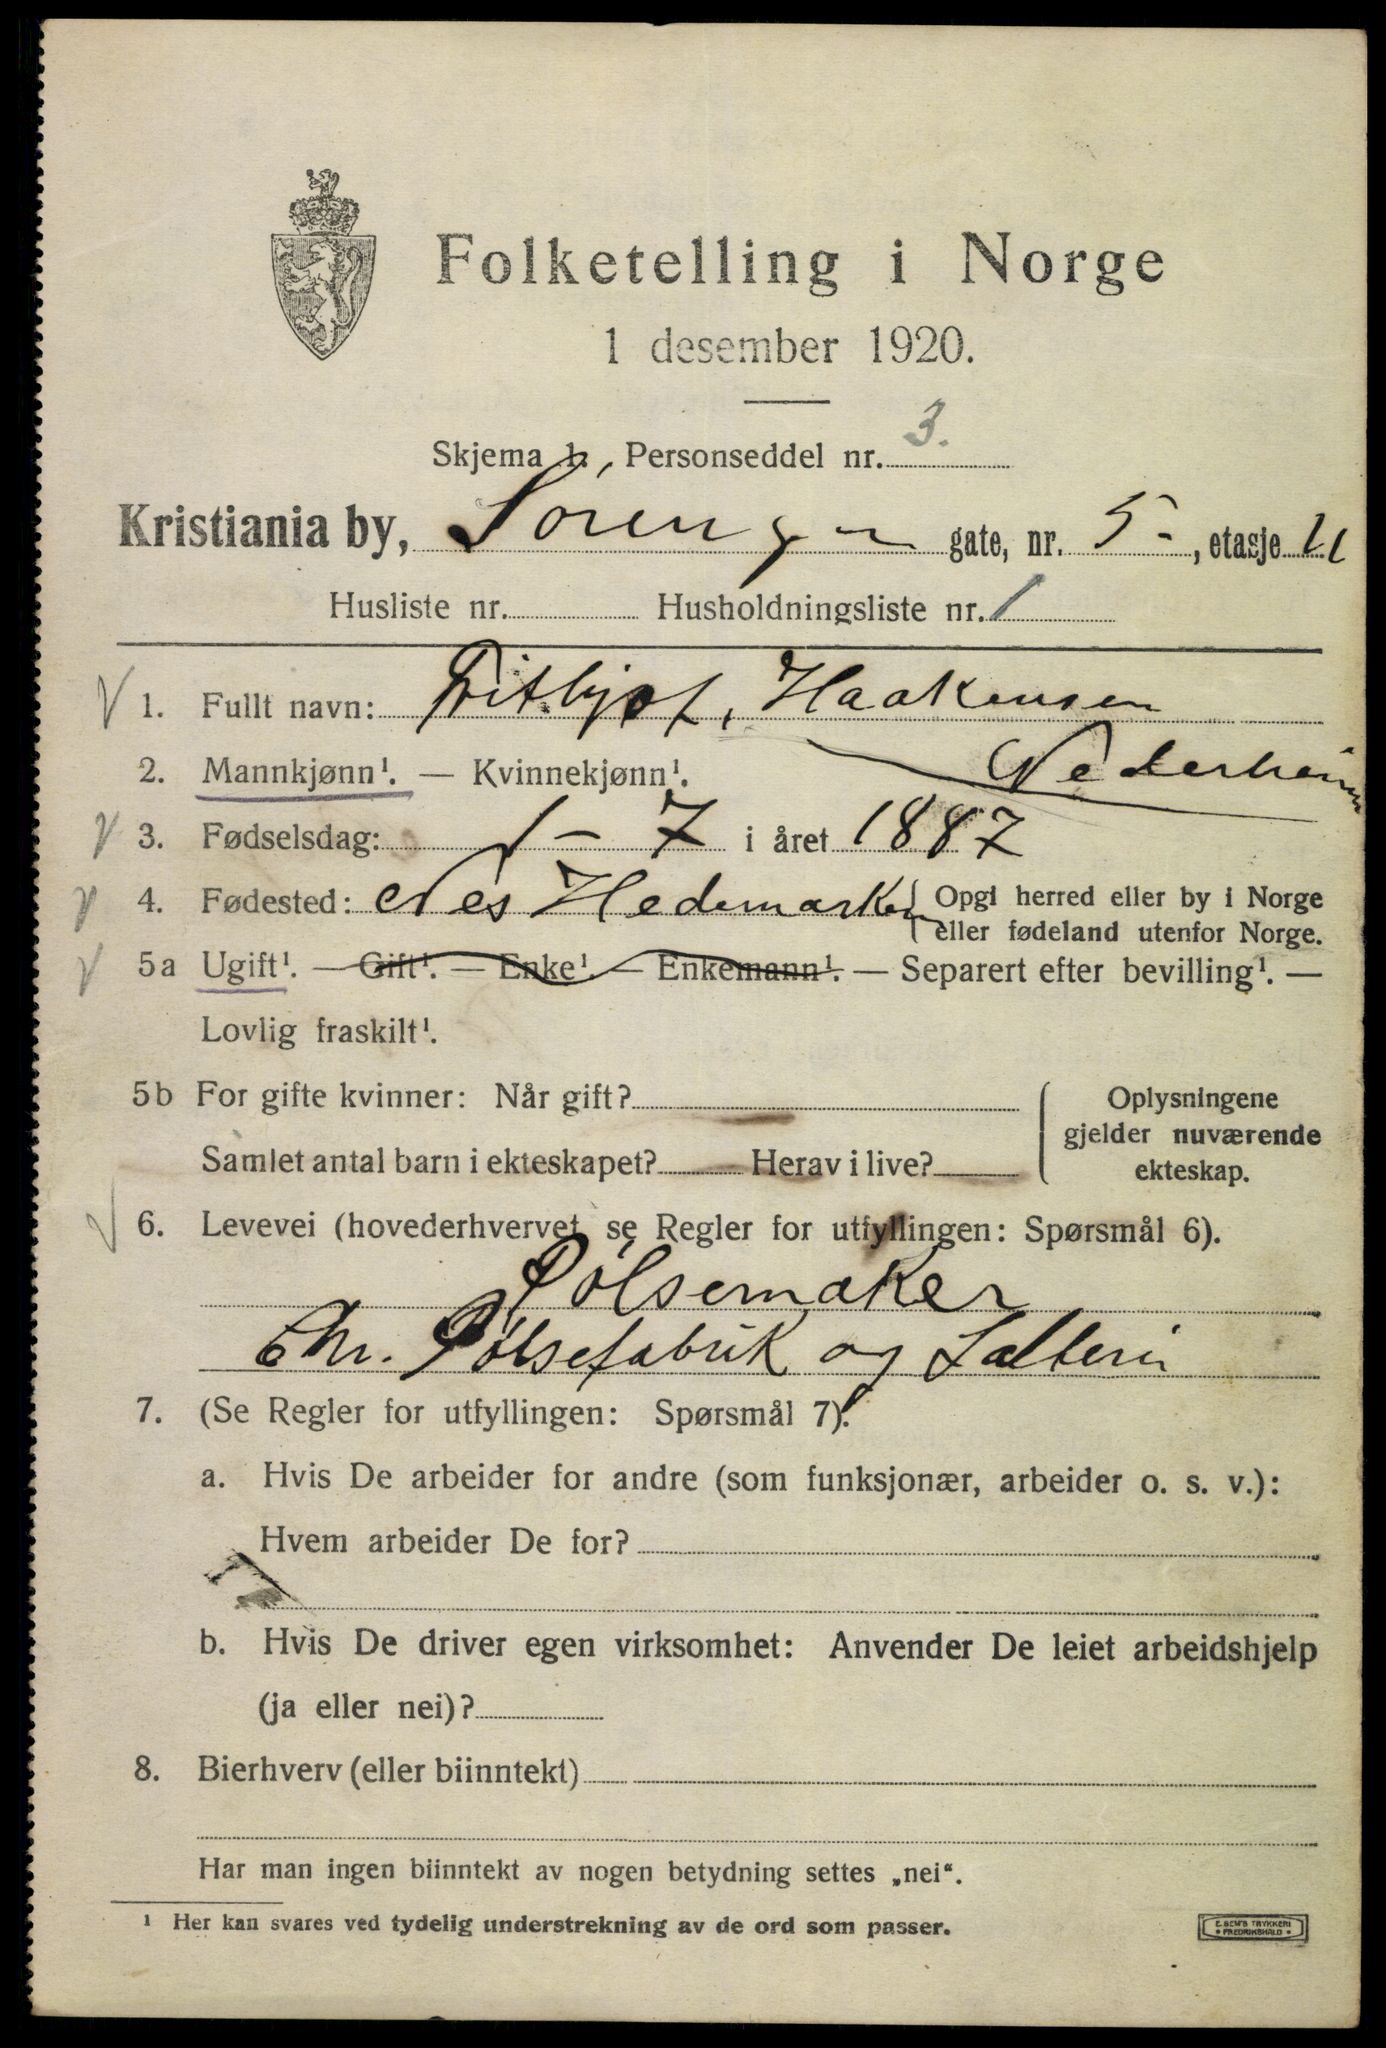 Folketelling i Norge
1 desember 1920.
Skjema 1. Personseddel nr. 3.
Kristiania by, Sørengen gate, nr. 5-, etasje II
Husliste nr. Husholdningsliste nr. 1
1. Fullt navn: Frithjof, Haakensen
Nederheim
2. Mannkjønn¹. — Kvinnekjønn¹.
3. Fødselsdag: 1 – 7 i året 1887
4. Fødested: Nes Hedemarken Opgi herred eller by i Norge
eller fødeland utenfor Norge.
5a Ugift¹. — Gift¹. — Enke¹. — Enkemann¹. — Separert efter bevilling¹. —
Lovlig fraskilt¹.
5b For gifte kvinner: Når gift? Oplysningene
gjelder nuværende
Samlet antal barn i ekteskapet? Herav i live? ekteskap.
6. Levevei (hovederhvervet, se Regler for utfyllingen: Spørsmål 6).
Pølsemaker
Chr. Pølsefabrik og Salteri
7. (Se Regler for utfyllingen: Spørsmål 7).
a. Hvis De arbeider for andre (som funksjonær, arbeider o. s. v.):
Hvem arbeider De for?
b. Hvis De driver egen virksomhet: Anvender De leiet arbeidshjelp
(ja eller nei)?
8. Bierhverv (eller biinntekt)
Har man ingen biinntekt av nogen betydning settes „nei“.
¹ Her kan svares ved tydelig understrekning av de ord som passer.
E. SEM'S TRYKKERI
• FREDRIKSHALD •